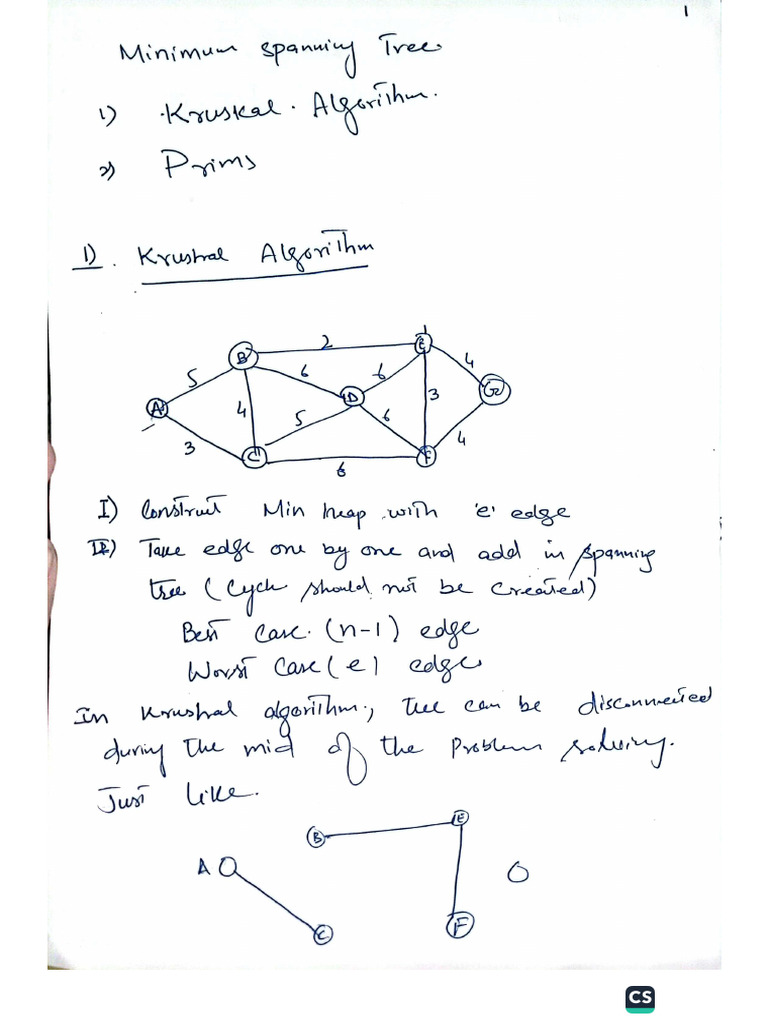 1
Minimum Spanning Tree.
1) Kruskal Algorithm.
2) Prims
1). Krushal Algorithm
B 2 E
5 6 6 4
A 4 D 3 G
3 5 6 4
C 6 F
I) Construct Min heap with 'e' edge
II) Take edge one by one and add in spanning
tree (Cycle should not be created)
Best Case (n-1) edge
Worst Case (e) edge
In Krushal algorithm, tree can be disconnected
during the mid of the problem solving.
Just like.
B E
A
C F
CS